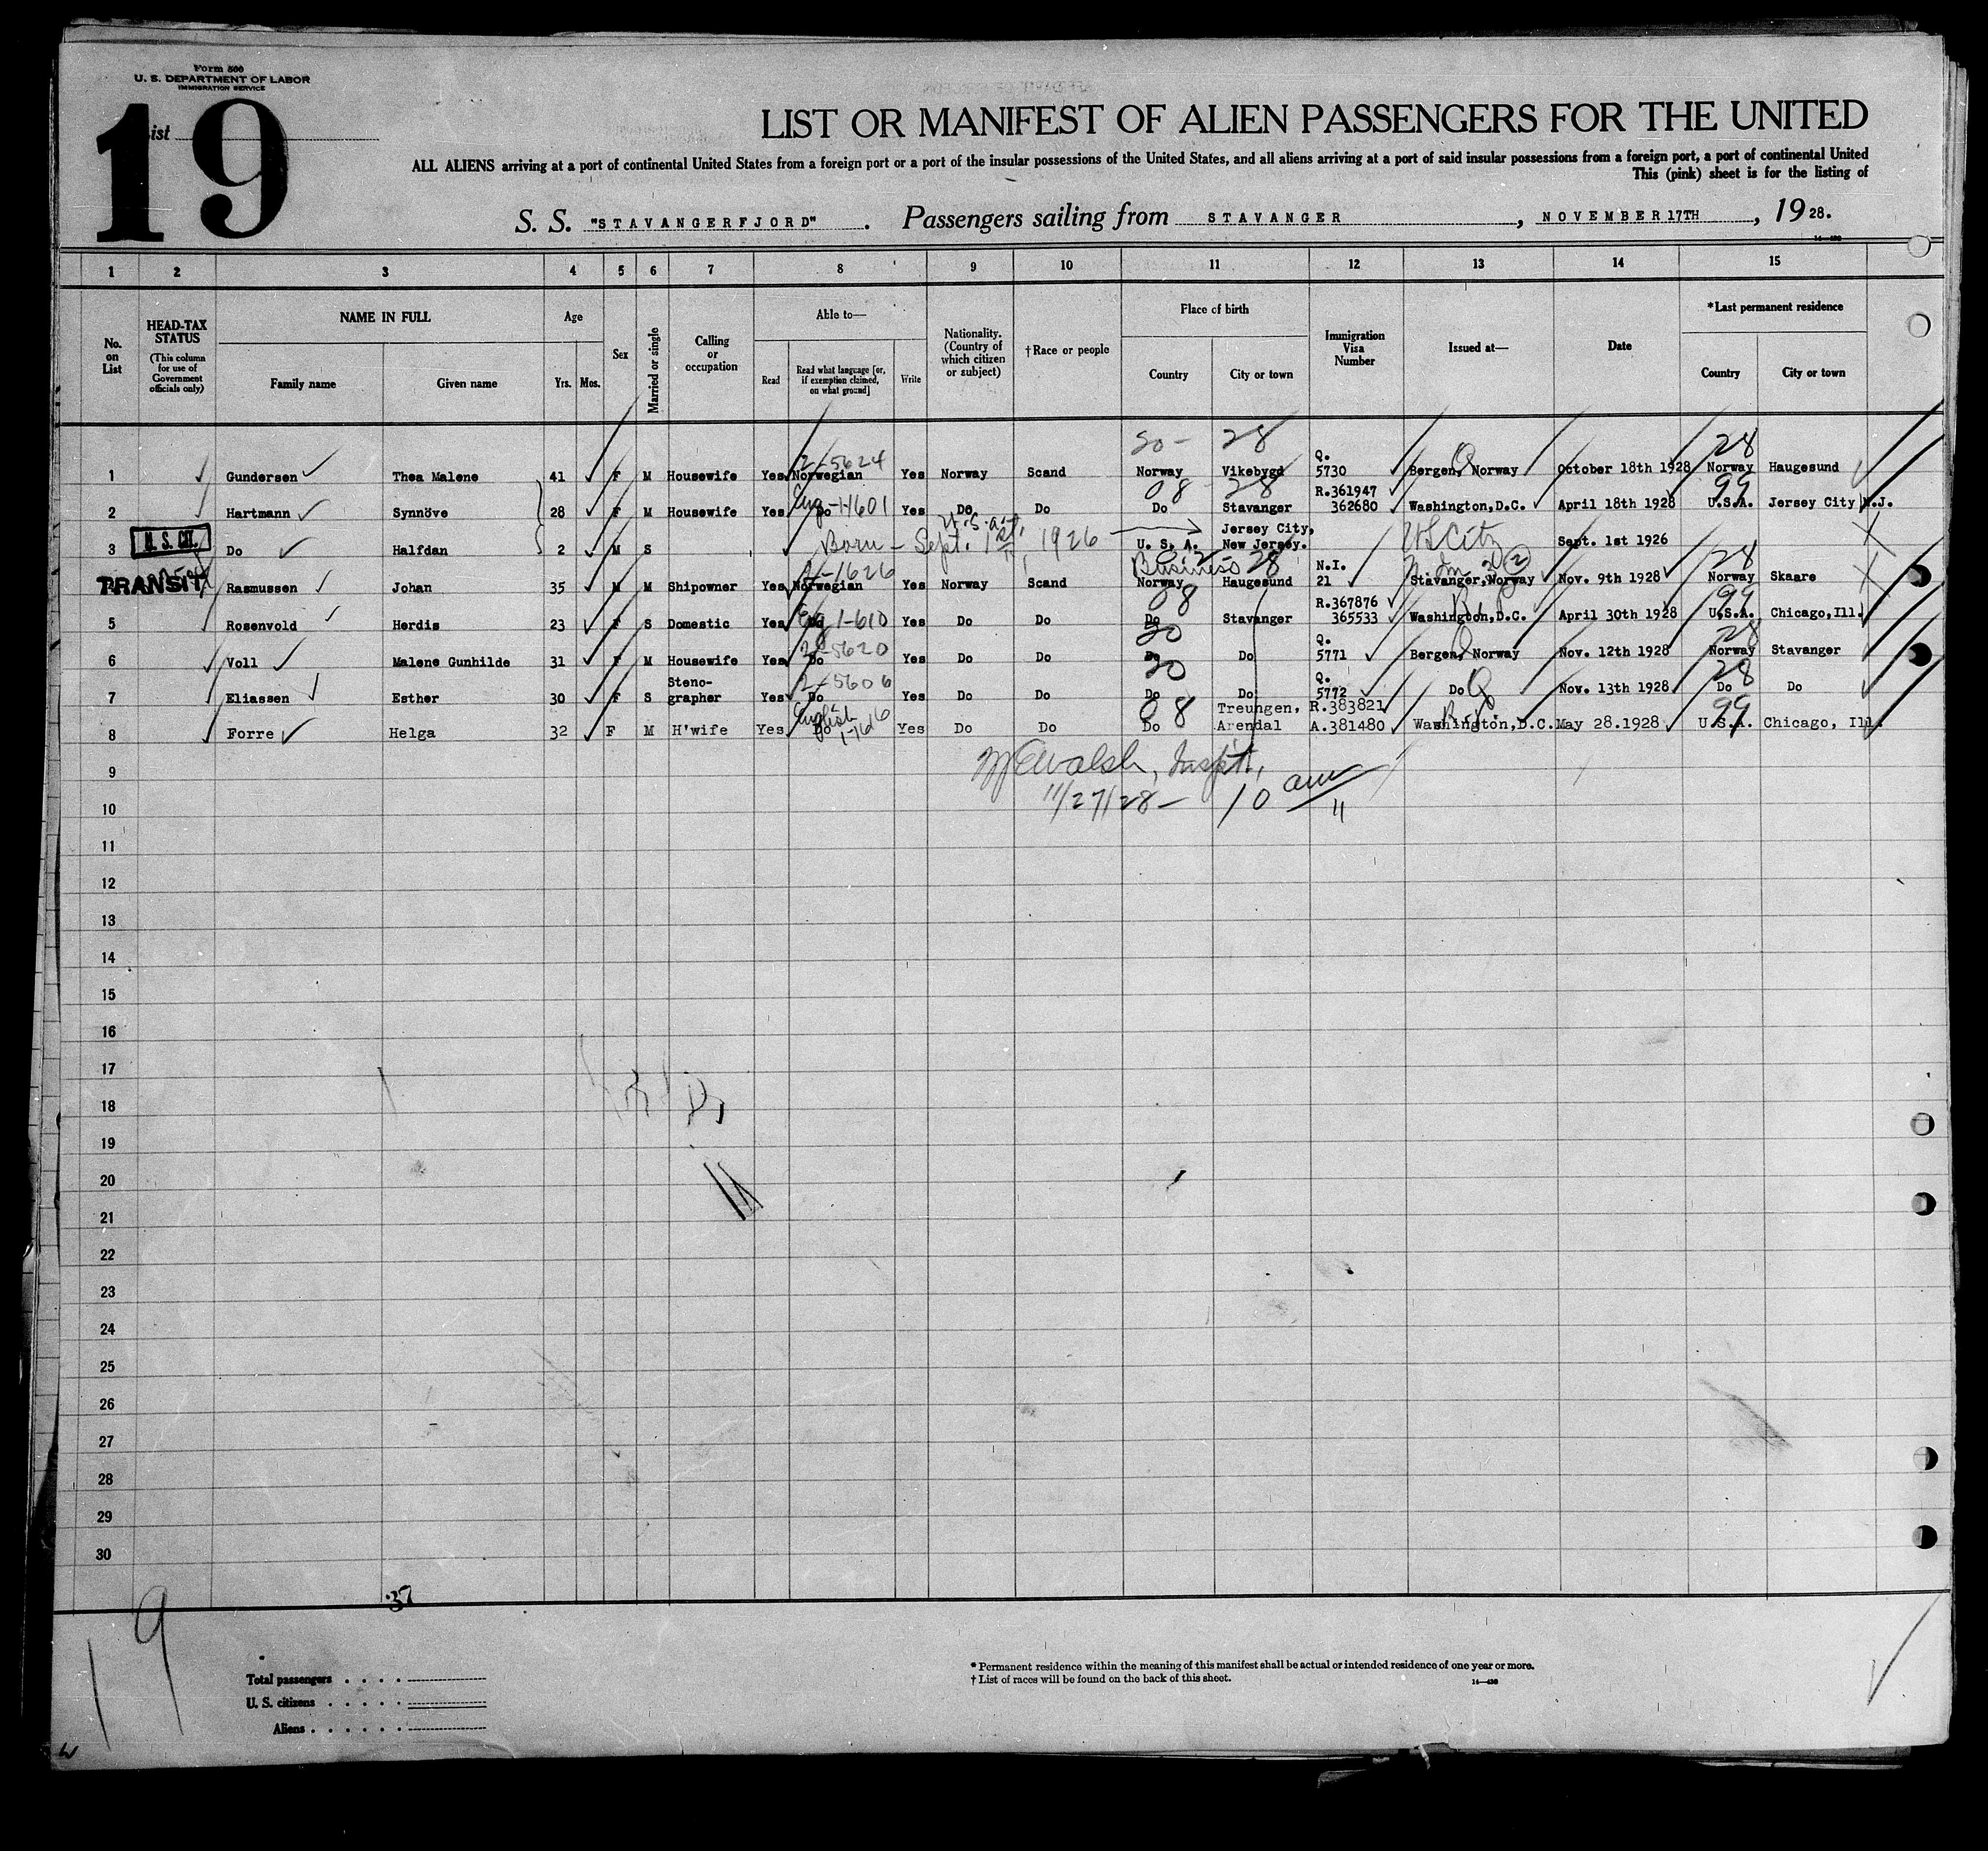 Form 500
U. S. DEPARTMENT OF LABOR
IMMIGRATION SERVICE
List
19
LIST OR MANIFEST OF ALIEN PASSENGERS FOR THE UNITED
ALL ALIENS arriving at a port of continental United States from a foreign port or a port of the insular possessions of the United States, and all aliens arriving at a port of said insular possessions from a foreign port, a port of continental United
This (pink) sheet is for the listing of
S. S. "STAVANGERFJORD". Passengers sailing from STAVANGER, NOVEMBER 17TH, 1928.
14—430
1 2 3 4 5 6 7 8 9 10 11 12 13 14 15
No. on List
HEAD-TAX STATUS (This column for use of Government officials only)
NAME IN FULL
Family name Given name
Age
Yrs. Mos.
Sex
Married or single
Calling or occupation
Able to—
Read Read what language [or, if exemption claimed, on what ground] Write
Nationality. (Country of which citizen or subject)
†Race or people
Place of birth
Country City or town
Immigration Visa Number
Issued at—
Date
*Last permanent residence
Country City or town
20 - 28 28
2-5624 Q.
1 Gundersen Thea Malene 41 F M Housewife Yes Norwegian Yes Norway Scand Norway Vikebygd 5730 Bergen, Norway October 18th 1928 Norway Haugesund
08 - 28 R.361947 99
2 Hartmann Synnöve 28 F M Housewife Yes Do Eng 1-1601 Yes Do Do Do Stavanger 362680 Washington,D.C. April 18th 1928 U.S.A. Jersey City N.J.
U.S. CIT. Born - U.S.a. Sept. 1st, 1926 Jersey City, US Citz
3 Do Halfdan 2 M S U. S. A. New Jersey. Sept. 1st 1926
2-1626 Business 28 N.I. 28
TRANSIT Rasmussen Johan 35 M M Shipowner Yes Norwegian Yes Norway Scand Norway Haugesund 21 Stavanger,Norway Nov. 9th 1928 Norway Skaare
08 R.367876 99
5 Rosenvold Herdis 23 F S Domestic Yes Do Eng 1-610 Yes Do Do Do Stavanger 365533 Washington,D.C. April 30th 1928 U.S.A. Chicago,Ill.
20 2-5620 Q. 28
6 Voll Malene Gunhilde 31 F M Housewife Yes Do Yes Do Do Do Do 5771 Bergen, Norway Nov. 12th 1928 Norway Stavanger
20 2-5606 Steno- Q. 28
7 Eliassen Esther 30 F S grapher Yes Do Yes Do Do Do Do 5772 Do Nov. 13th 1928 Do Do
08 English 1-16 Treungen, R.383821 99
8 Forre Helga 32 F M H'wife Yes Do Yes Do Do Do Arendal A.381480 Washington,D.C. May 28.1928 U.S.A. Chicago, Ill.
Walsh, Inspt,
11/27/28 - 10 am
9
10
11
12
13
14
15
16
17
18
19
20
21
22
23
24
25
26
27
28
29
30
37
19
Total passengers
U. S. citizens
Aliens
* Permanent residence within the meaning of this manifest shall be actual or intended residence of one year or more.
† List of races will be found on the back of this sheet.
14—430